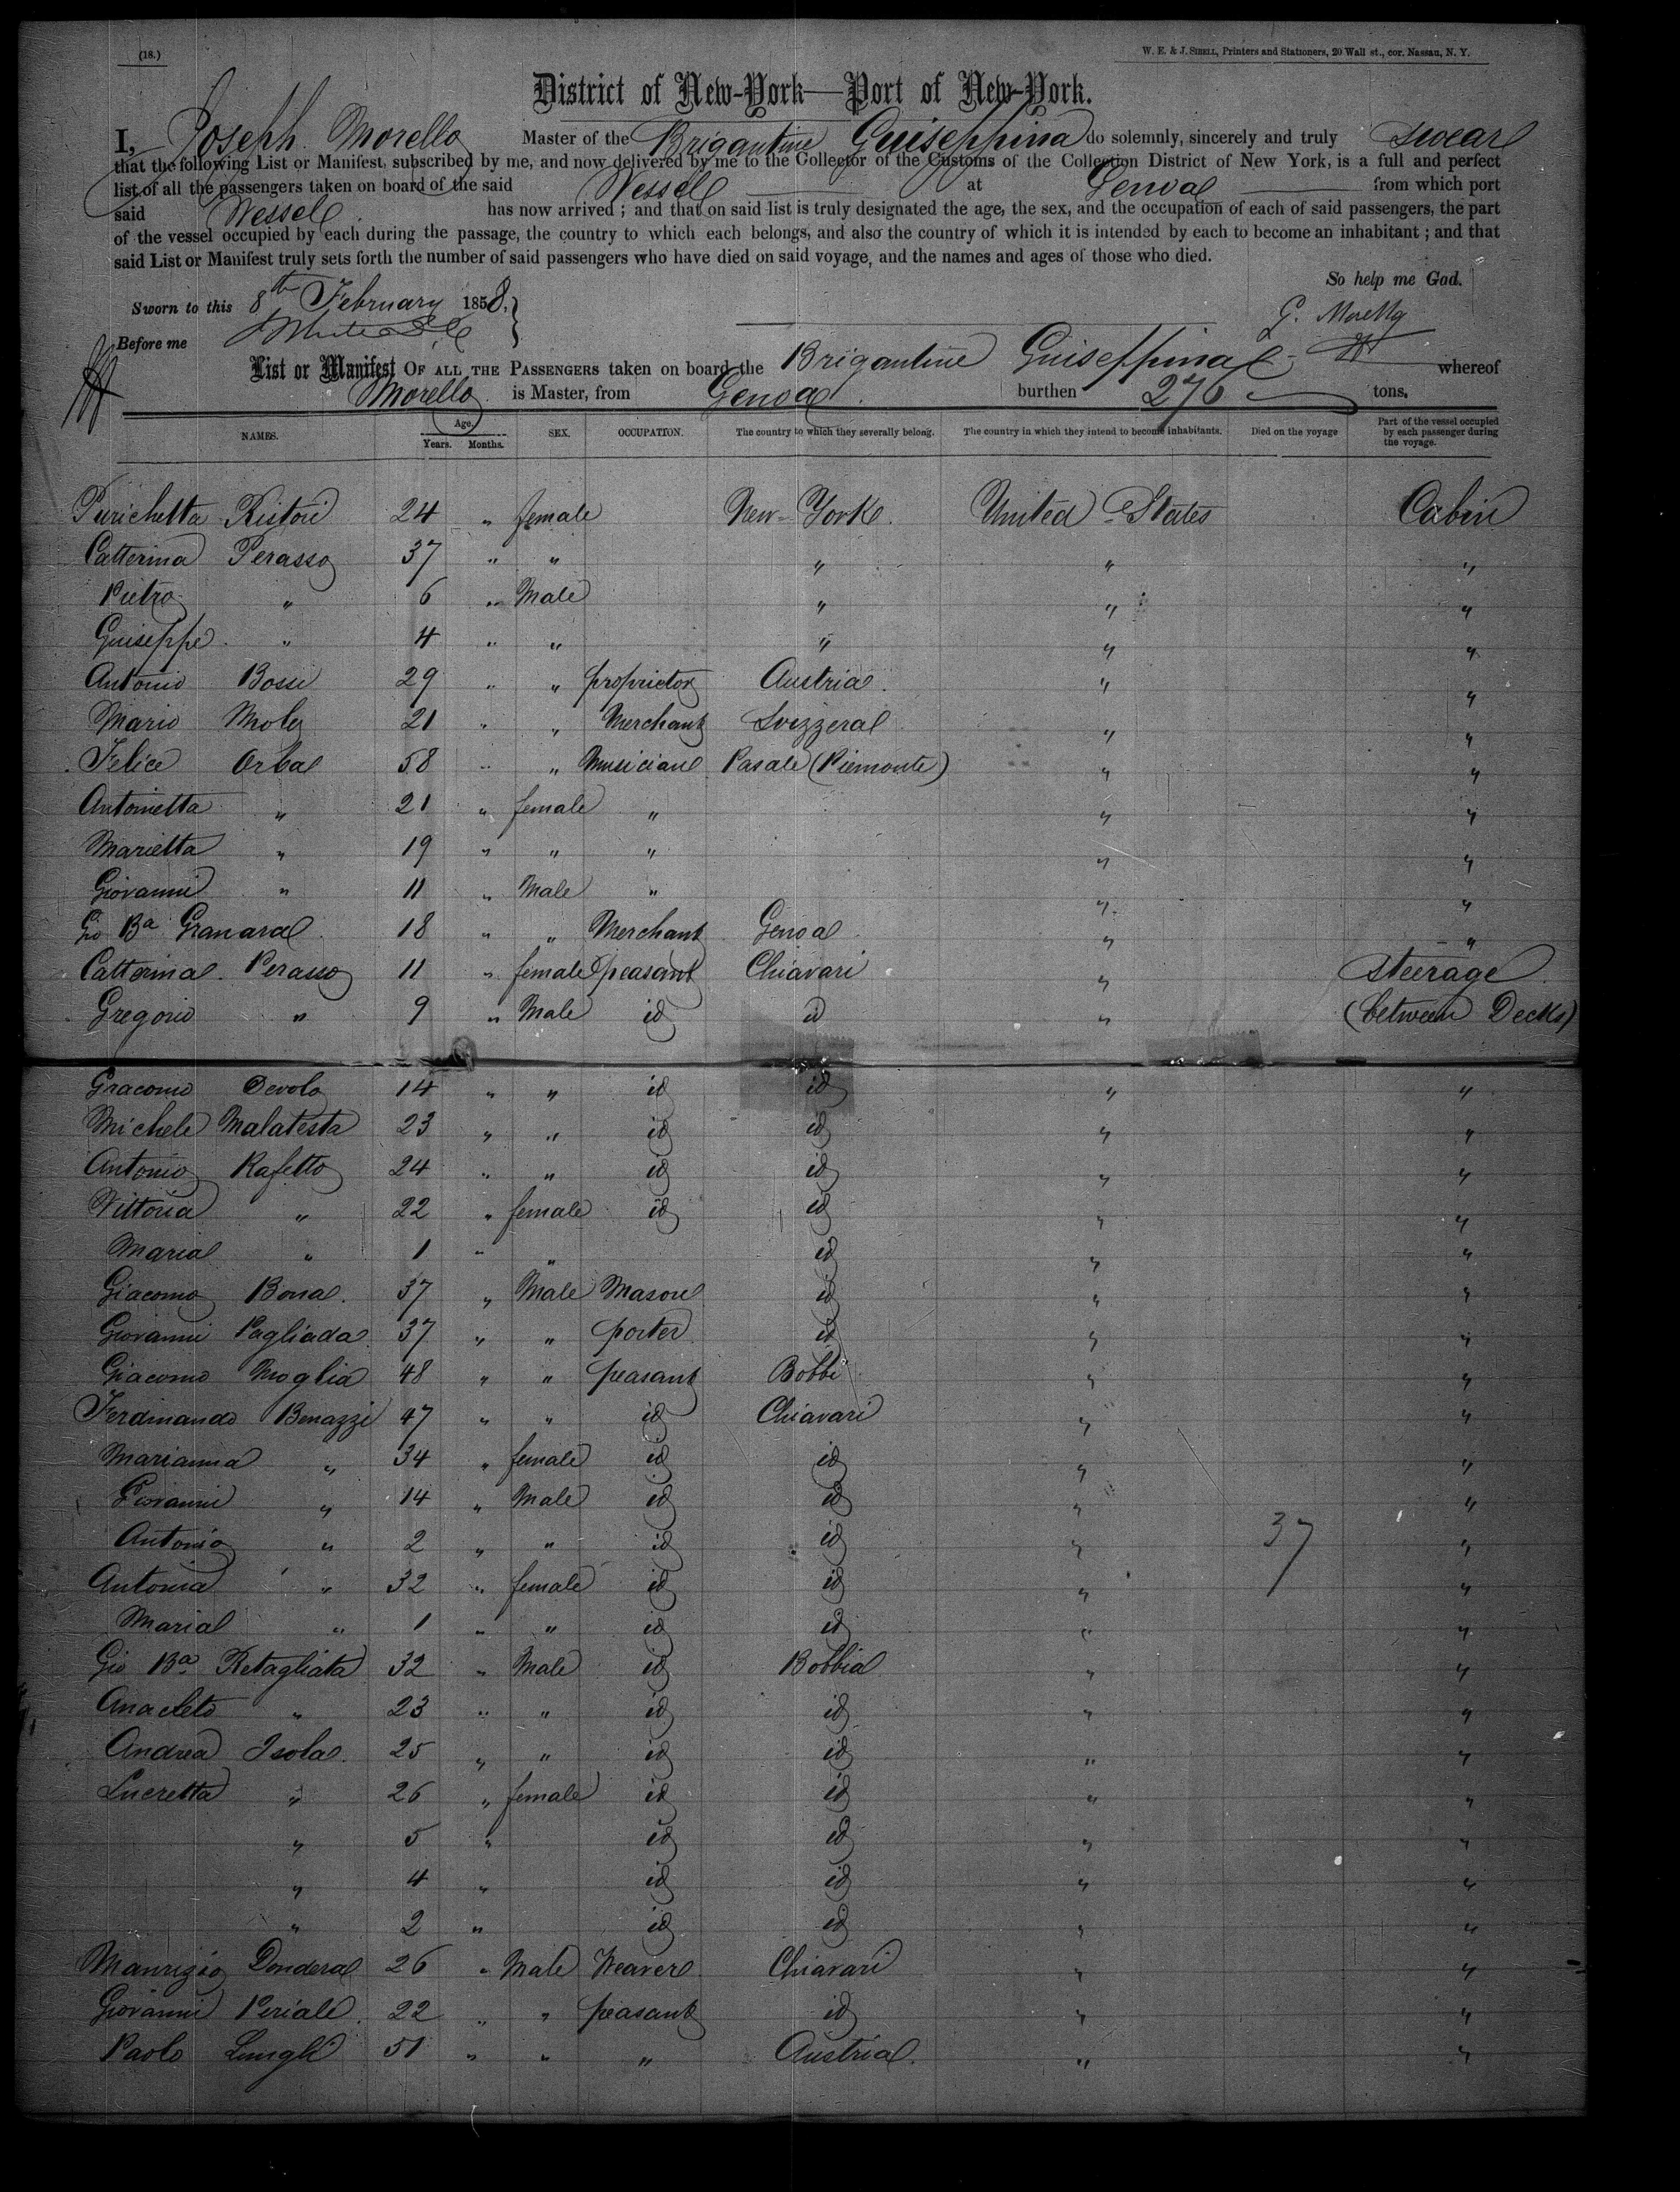 (18.)
W. E. & J. SIBELL, Printers and Stationers, 20 Wall st., cor. Nassau, N. Y.
District of New-York—Port of New-York.
I, Joseph Morello Master of the Brigantine Guiseppina do solemnly, sincerely and truly swear
that the following List or Manifest, subscribed by me, and now delivered by me to the Collector of the Customs of the Collection District of New York, is a full and perfect
list of all the passengers taken on board of the said Vessel at Genoa from which port
said Vessel has now arrived; and that on said list is truly designated the age, the sex, and the occupation of each of said passengers, the part
of the vessel occupied by each during the passage, the country to which each belongs, and also the country of which it is intended by each to become an inhabitant; and that
said List or Manifest truly sets forth the number of said passengers who have died on said voyage, and the names and ages of those who died.
So help me God.
Sworn to this 8th February 1858.
G. Morello
Before me
List or Manifest OF ALL THE PASSENGERS taken on board the Brigantine Guiseppina whereof
Morello is Master, from Genoa burthen 276 tons.
NAMES. Age. Years. Months. SEX. OCCUPATION. The country to which they severally belong. The country in which they intend to become inhabitants. Died on the voyage Part of the vessel occupied by each passenger during the voyage.
Ristori 24 " female New-York United States Cabin
Catterina Perasso 37 " " " " "
Pietro " 6 " Male " " "
Guiseppe " 4 " " " " "
Antonio Bossi 29 " " proprietor Austria " "
Mario Moly 21 " " Merchant Svizzera " "
Felice Orba 58 " " Musician Casale (Piemonte) " "
Antonietta " 21 " female " " "
Marietta " 19 " " " " "
Giovanni " 11 " Male " " "
Gio Ba Granara 18 " " Merchant Genoa " "
Catterina Perasso 11 " female peasant Chiavari " Steerage
Gregorio " 9 " Male id id " (between Decks)
Giacomo Devoto 14 " " id id " "
Michele Malatesta 23 " " id id " "
Antonio Rafetto 24 " " id id " "
Vittoria " 22 " female id id " "
Maria " 1 " " id " "
Giacomo Bona 37 " Male Mason id " "
Giovanni Pagliada 37 " " porter id " "
Giacomo Moglia 48 " " peasant Bobbi " "
Ferdinando Benazzi 47 " " id Chiavari " "
Marianna " 34 " female id id " "
Giovanni " 14 " Male id id " "
Antonio " 2 " " id id " 37 "
Antonia " 32 " female id id " "
Maria " 1 " " id id " "
Gio Ba Retagliata 32 " Male id Bobbia " "
Anacleto " 23 " " id id " "
Andrea Isola 25 " " id id " "
Lucretta " 26 " female id id " "
" 5 " id id " "
" 4 " id id " "
" 2 " id id " "
Maurizio Dondera 26 " Male Weaver Chiavari " "
Giovanni Periale 22 " " peasant id " "
Paolo Lunghi 51 " " " Austria " "